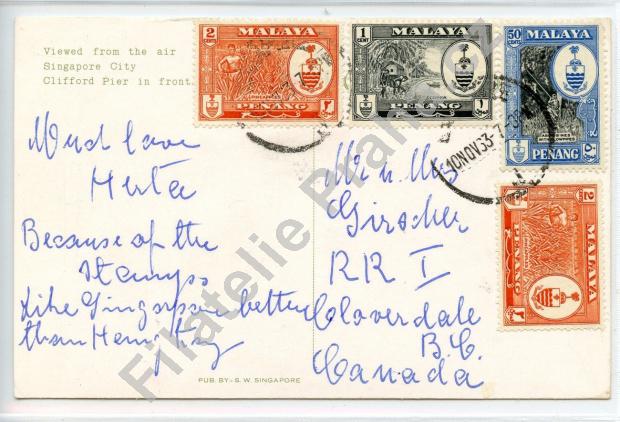 Viewed from the air
Singapore City
Clifford Pier in front.
Much love
Herta
Because of the
stamps
Like Singapore better
than Hong Kong
Mr u Mrs
Girscher
RR I
Cloverdale
B.C.
Canada
PUB. BY - S. W. SINGAPORE
2
CENTS
MALAYA
PENANG
1
CENT
MALAYA
PENANG
1
50
CENTS
MALAYA
PENANG
2
CENTS
MALAYA
PENANG
Filatelie